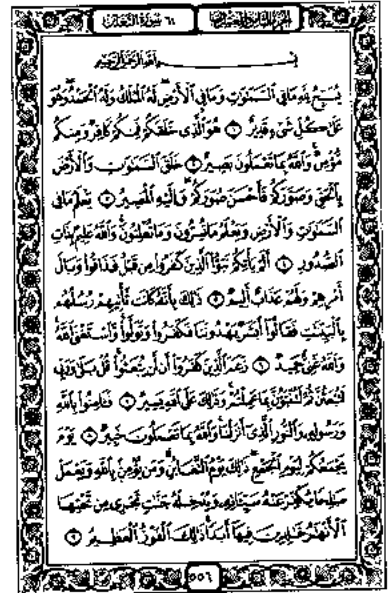 الجزء الثامن والعشرون
٦٤ سورة التغابن
بسم الله الرحمن الرحيم
يُسَبِّحُ لِلَّهِ مَا فِي السَّمَٰوَٰتِ وَمَا فِي الْأَرْضِ لَهُ الْمُلْكُ وَلَهُ الْحَمْدُ وَهُوَ
عَلَىٰ كُلِّ شَىْءٍ قَدِيرٌ ١ هُوَ الَّذِى خَلَقَكُمْ فَمِنكُمْ كَافِرٌ وَمِنكُم
مُّؤْمِنٌ وَاللَّهُ بِمَا تَعْمَلُونَ بَصِيرٌ ٢ خَلَقَ السَّمَٰوَٰتِ وَالْأَرْضَ
بِالْحَقِّ وَصَوَّرَكُمْ فَأَحْسَنَ صُوَرَكُمْ وَإِلَيْهِ الْمَصِيرُ ٣ يَعْلَمُ مَا فِى
السَّمَٰوَٰتِ وَالْأَرْضِ وَيَعْلَمُ مَا تُسِرُّونَ وَمَا تُعْلِنُونَ وَاللَّهُ عَلِيمٌ بِذَاتِ
الصُّدُورِ ٤ أَلَمْ يَأْتِكُمْ نَبَؤُا الَّذِينَ كَفَرُوا مِن قَبْلُ فَذَاقُوا وَبَالَ
أَمْرِهِمْ وَلَهُمْ عَذَابٌ أَلِيمٌ ٥ ذَٰلِكَ بِأَنَّهُ كَانَت تَّأْتِيهِمْ رُسُلُهُم
بِالْبَيِّنَٰتِ فَقَالُوا أَبَشَرٌ يَهْدُونَنَا فَكَفَرُوا وَتَوَلَّوا وَّاسْتَغْنَى اللَّهُ
وَاللَّهُ غَنِىٌّ حَمِيدٌ ٦ زَعَمَ الَّذِينَ كَفَرُوا أَن لَّن يُبْعَثُوا قُلْ بَلَىٰ وَرَبِّى
لَتُبْعَثُنَّ ثُمَّ لَتُنَبَّؤُنَّ بِمَا عَمِلْتُمْ وَذَٰلِكَ عَلَى اللَّهِ يَسِيرٌ ٧ فَـَٔامِنُوا بِاللَّهِ
وَرَسُولِهِ وَالنُّورِ الَّذِى أَنزَلْنَا وَاللَّهُ بِمَا تَعْمَلُونَ خَبِيرٌ ٨ يَوْمَ
يَجْمَعُكُمْ لِيَوْمِ الْجَمْعِ ذَٰلِكَ يَوْمُ التَّغَابُنِ وَمَن يُؤْمِن بِاللَّهِ وَيَعْمَلْ
صَٰلِحًا يُكَفِّرْ عَنْهُ سَيِّـَٔاتِهِ وَيُدْخِلْهُ جَنَّٰتٍ تَجْرِى مِن تَحْتِهَا
الْأَنْهَٰرُ خَٰلِدِينَ فِيهَا أَبَدًا ذَٰلِكَ الْفَوْزُ الْعَظِيمُ ٩
٥٥٦